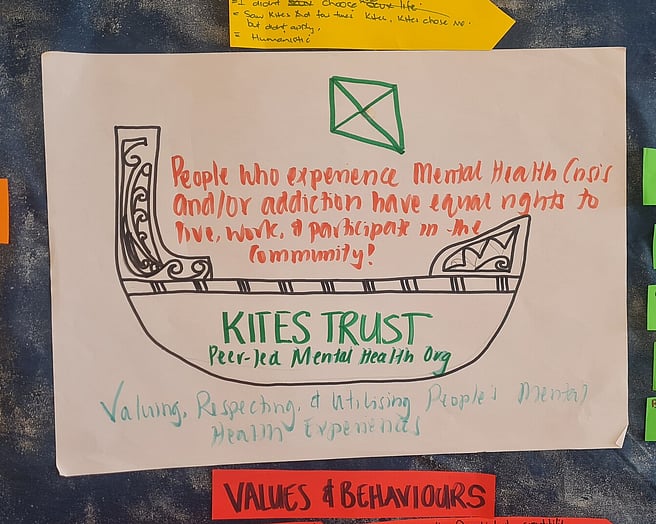 = I didnt choose life.
= Saw Kites Kites, Kites chose me.
but didnt apply,
= Humanistic
People who experience Mental Health Crisis
and/or addiction have equal rights to
live, work, & participate in the
Community!
KITES TRUST
Peer-led Mental Health Org
Valuing, Respecting, & Utilising People's Mental
Health Experiences
VALUES & BEHAVIOURS